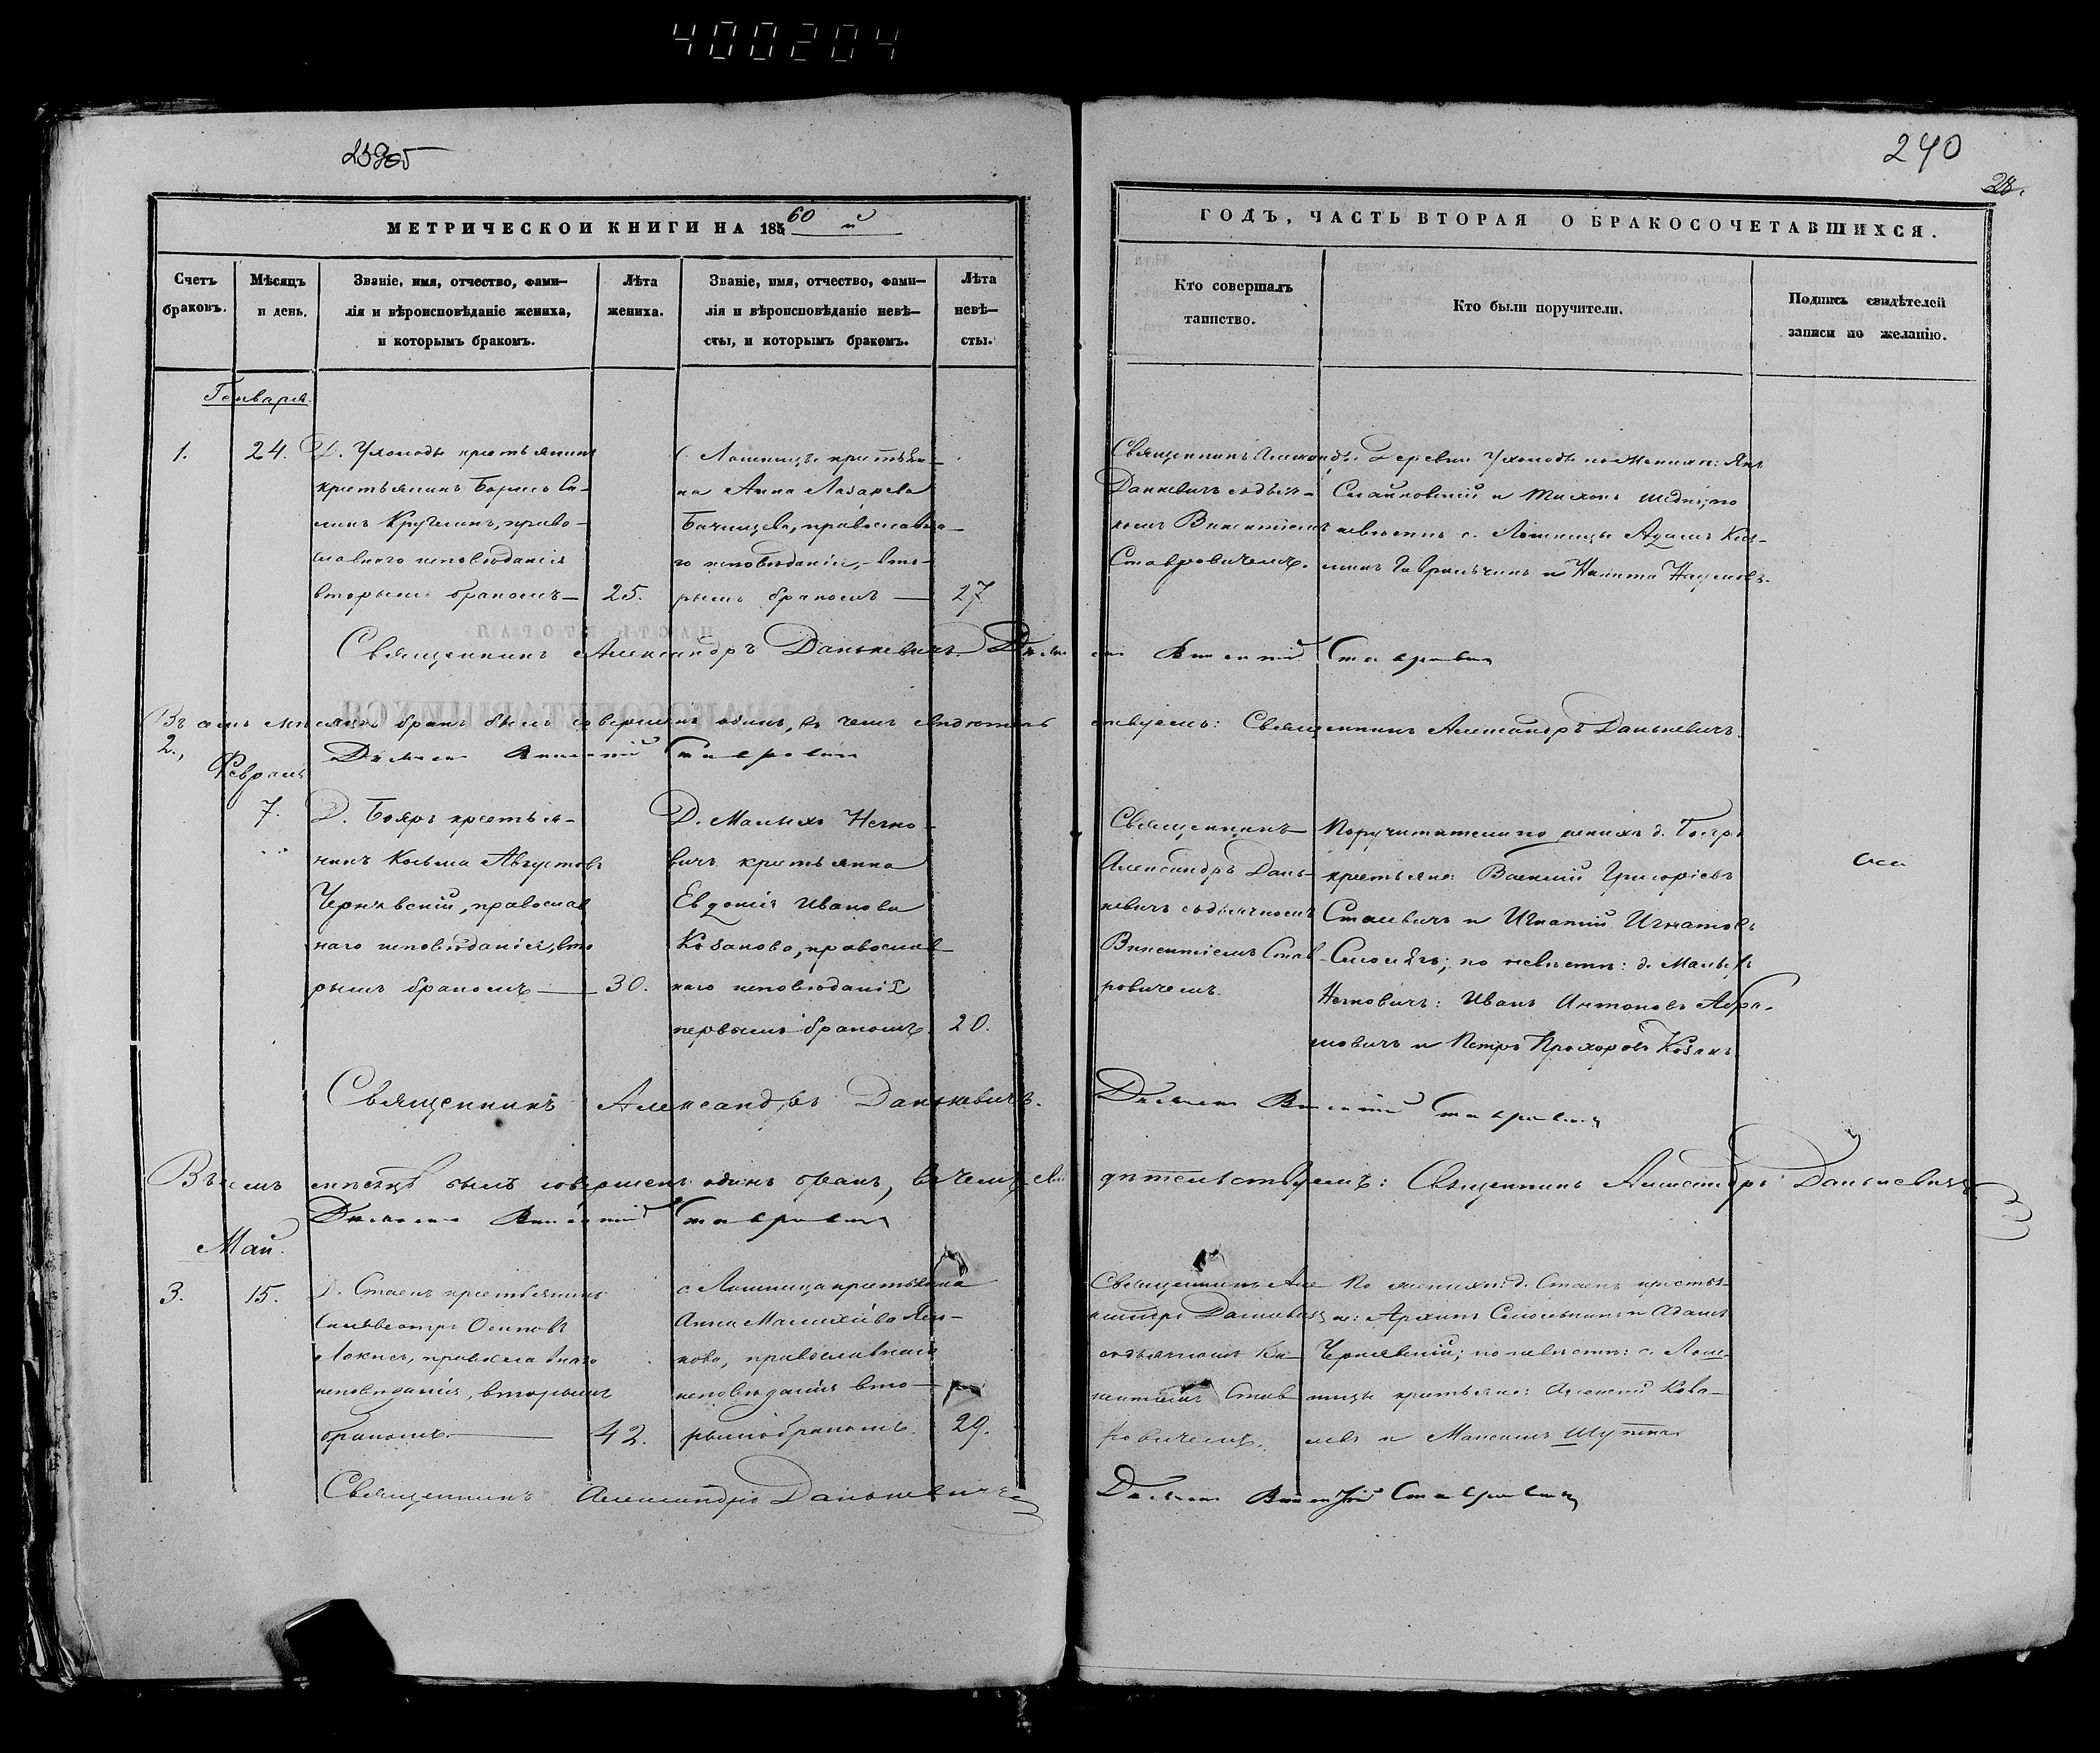 400204
240
28.
МЕТРИЧЕСКОЙ КНИГИ НА 1860 й
ГОДЪ, ЧАСТЬ ВТОРАЯ О БРАКОСОЧЕТАВШИХСЯ.
Счетъ
браковъ.
Мѣсяцъ
и день.
Званіе, имя, отчество, фами-
лія и вѣроисповѣданіе жениха,
и которымъ бракомъ.
Лѣта
жениха.
Званіе, имя, отчество, фами-
лія и вѣроисповѣданіе невѣ-
сты, и которымъ бракомъ.
Лѣта
невѣ-
сты.
Кто совершалъ
таинство.
Кто были поручители.
Подпись свидѣтелей
записи по желанію.
Генваря.
1.
24.
Д. Ухолоды крестьянинъ
крестьянинъ Борисъ
Кругликъ, право-
славнаго исповѣданія
вторымъ бракомъ—
25.
с. Лошницы крестьян-
ка Анна Лазарева
православна-
го исповѣданія, вто-
рымъ бракомъ —
27.
Священникъ Александръ
Данкевичъ съ дьяч-
комъ Викентіемъ
Ставровичемъ.
Деревни Ухолоды по женихѣ: Янъ
и Тихонъ по
невѣстѣ с. Лошницы Адамъ
и Никита Наумовъ.
Священникъ Александръ Данькевичъ. Дьячекъ Викентій Ставровичъ
Въ семъ мѣсяцѣ бракъ былъ совершенъ одинъ, въ чемъ свидѣтельствуемъ: Священникъ Александръ Данькевичъ.
Дьячекъ Викентій Ставровичъ
2.
Февраль
7.
Д. Бояръ крестья-
нинъ Козьма Августовъ
Чернявскій, православ
наго исповѣданія, вто
рымъ бракомъ —
30.
Д. Малыхъ Негно-
вичъ крестьянка
Евдокія Иванова
Козакова, православ-
наго исповѣданія
первымъ бракомъ.
20.
Священникъ
Александръ Дань-
кевичъ съ дьячкомъ
Викентіемъ Став-
ровичемъ.
Поручители по женихѣ д. Бояръ
крестьяне: Василій Григорієвъ
Сташевичъ и Игнатій Игнатовъ
по невѣстѣ: д. Малыхъ
Негновичъ: Иванъ Антоновъ Абра-
мовичъ и Петръ Прохоровъ Козакъ.
Священникъ Александръ Данькевичъ.
Дьячекъ Викентій Ставровичъ
Въ семъ мѣсяцѣ былъ совершенъ одинъ бракъ, въ чемъ свидѣтельствуемъ: Священникъ Александръ Данькевичъ
Дьячекъ Викентій Ставровичъ
Май.
3.
15.
Д. Стаекъ крестьянинъ
Сильвестръ Осиповъ
православнаго
исповѣданія, вторымъ
бракомъ. —
42.
с. Лошница крестьянка
Анна
православнаго
исповѣданія вто-
рымъ бракомъ.
29.
Священникъ Але
ксандръ Данькевичъ
съ дьячкомъ Ви
кентіемъ Став
ровичемъ.
По женихѣ: д. Стаекъ крестья-
не: Архипъ и Адамъ
Чернявскій; по невѣстѣ: с. Лош-
ницы крестьяне: Алексѣй Кова-
левъ и Максимъ Шутка
Священникъ Александръ Данькевичъ
Дьячекъ Викентій Ставровичъ